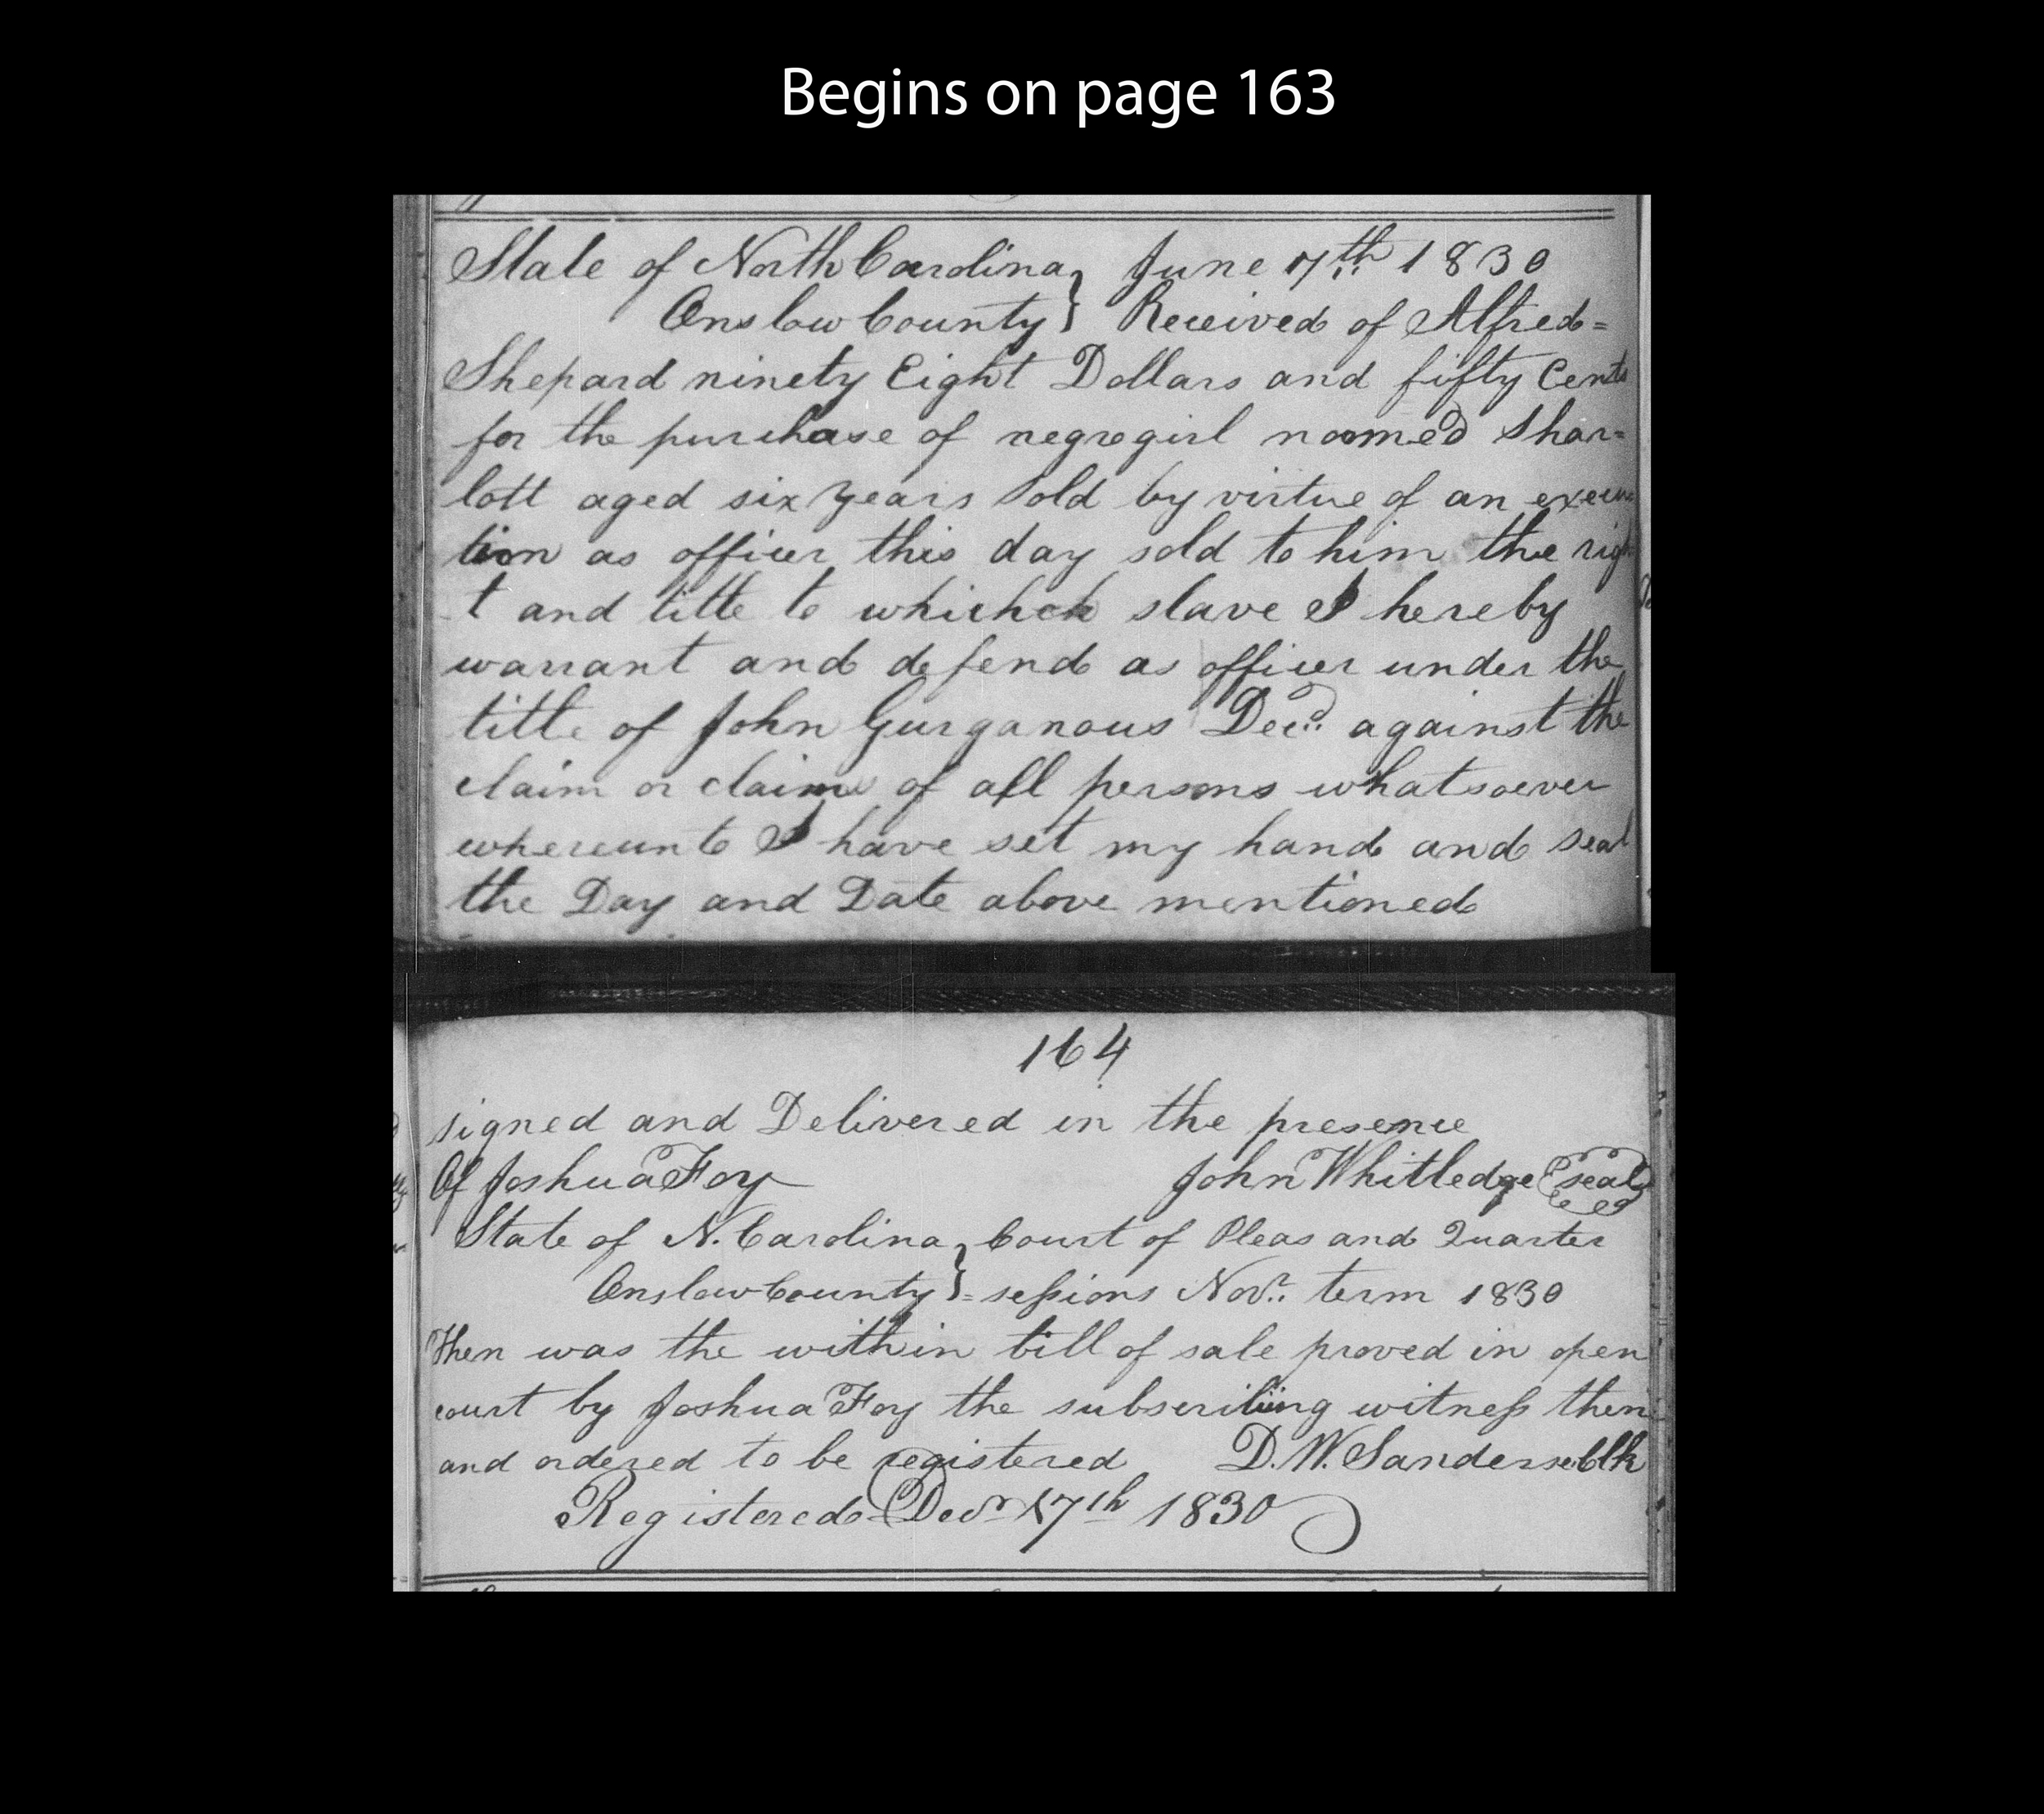 Begins on page 163
State of North Carolina } June 7th 1830
Onslow County } Received of Alfred=
Shepard ninety Eight Dollars and fifty Cents
for the purchase of negro girl named Shar=
lott aged six years sold by virtue of an execu
tion as officer this day sold to him the righ
t and title to which slave I hereby
warrant and defend as officer under the
title of John Gurganous Decd. against the
claim or claims of all persons whatsoever
whereunto I have set my hand and seal
the Day and Date above mentioned
164
signed and Delivered in the presence
Of Joshua Foy John Whitledge seal
State of N. Carolina } Court of Pleas and Quarter
Onslow County } = sessions Novr. term 1830
Then was the within bill of sale proved in open
court by Joshua Foy the subscribing witness there
and ordered to be registered D. W. Sanders Clk
Registered Decr 17th 1830